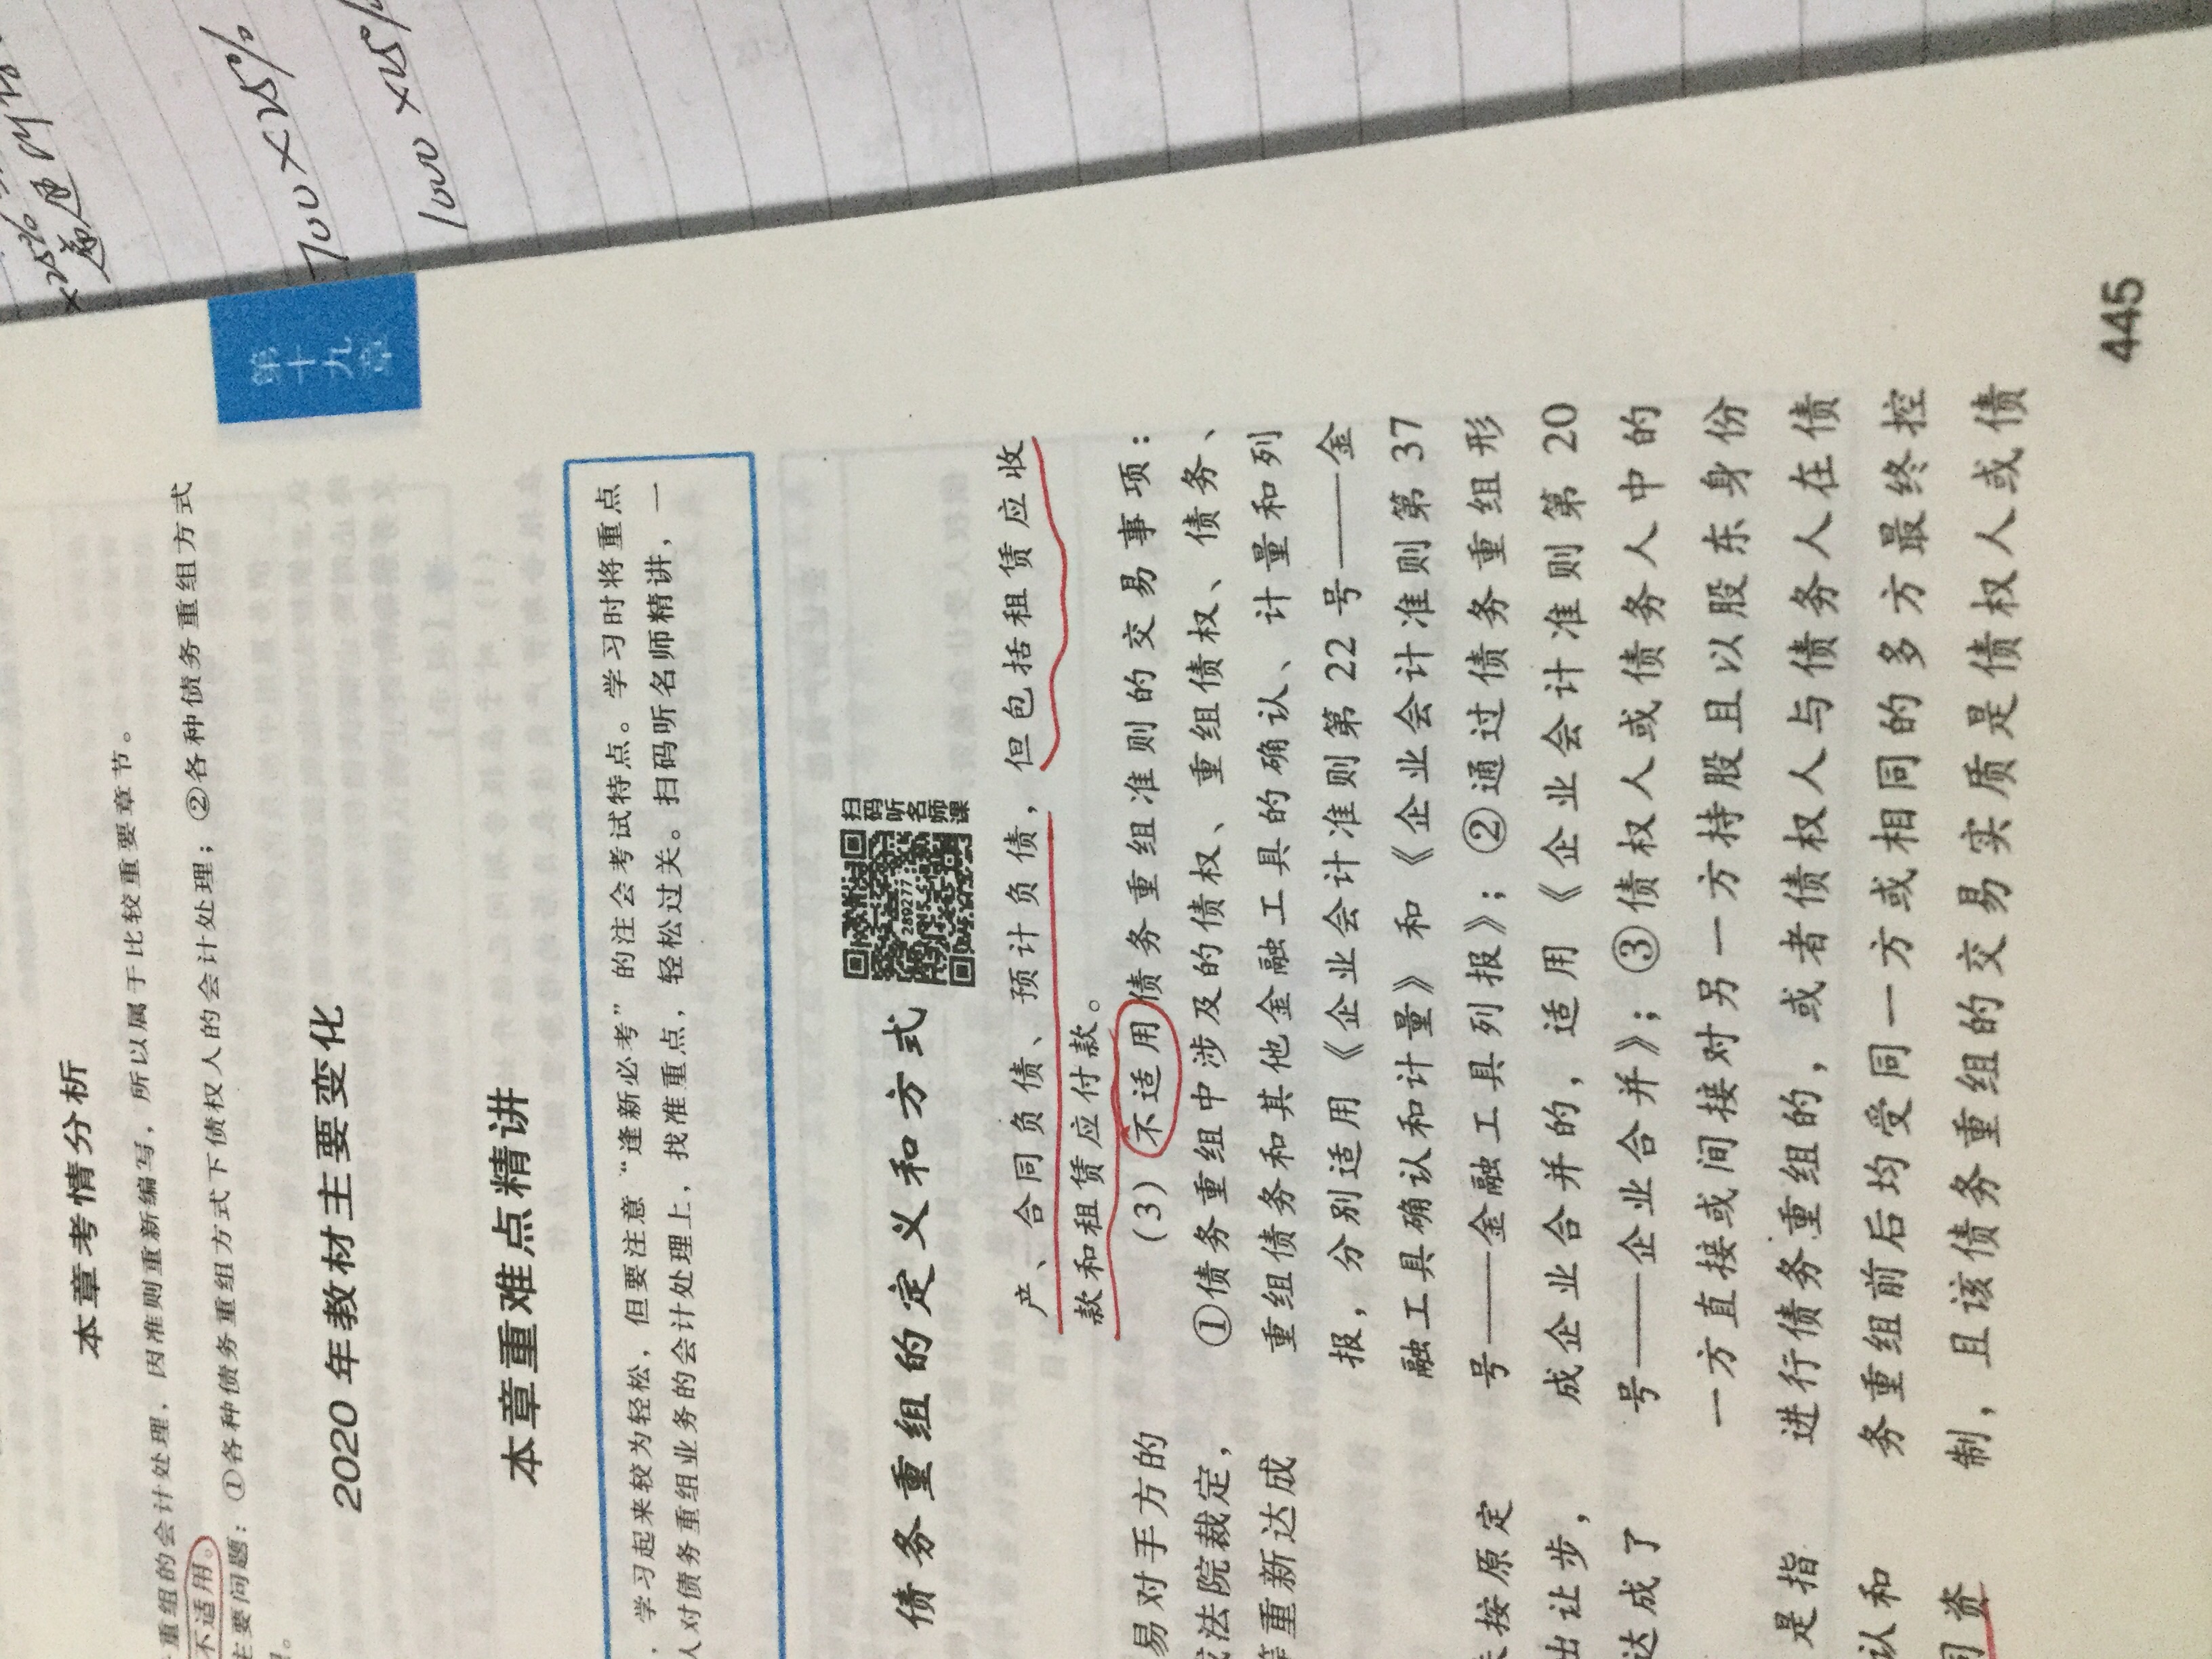 ×25%
700×25%
1000×25%
第十九章
本章考情分析
重组的会计处理，因准则重新编写，所以属于比较重要章节。
不适用。
主要问题：①各种债务重组方式下债权人的会计处理；②各种债务重组方式
2020 年教材主要变化
本章重难点精讲
学习起来较为轻松，但要注意“逢新必考”的注会考试特点。学习时将重点
人对债务重组业务的会计处理上，找准重点，轻松过关。扫码听名师精讲，一
债务重组的定义和方式
扫码听名师课
289277
易对手方的
法院裁定，
等重新达成
按原定
出让步，
达成了
是指
认和
同资
产、合同负债、预计负债，但包括租赁应收
款和租赁应付款。
（3）不适用债务重组准则的交易事项：
①债务重组中涉及的债权、重组债权、债务、
重组债务和其他金融工具的确认、计量和列
报，分别适用《企业会计准则第 22 号——金
融工具确认和计量》和《企业会计准则第 37
号——金融工具列报》；②通过债务重组形
成企业合并的，适用《企业会计准则第 20
号——企业合并》；③债权人或债务人中的
一方直接或间接对另一方持股且以股东身份
进行债务重组的，或者债权人与债务人在债
务重组前后均受同一方或相同的多方最终控
制，且该债务重组的交易实质是债权人或债
445